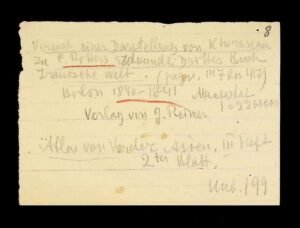 8
Versuch einer Darstellung von Khorassan
zu C. Ritters Erdkunde Drittes Buch
Iranische Welt.
Berlin 1840-1841 Maassstab
Verlag von G. Reimer 1 = 2200000
Atlas von Vorder Asien, III Heft
2tes Blatt.